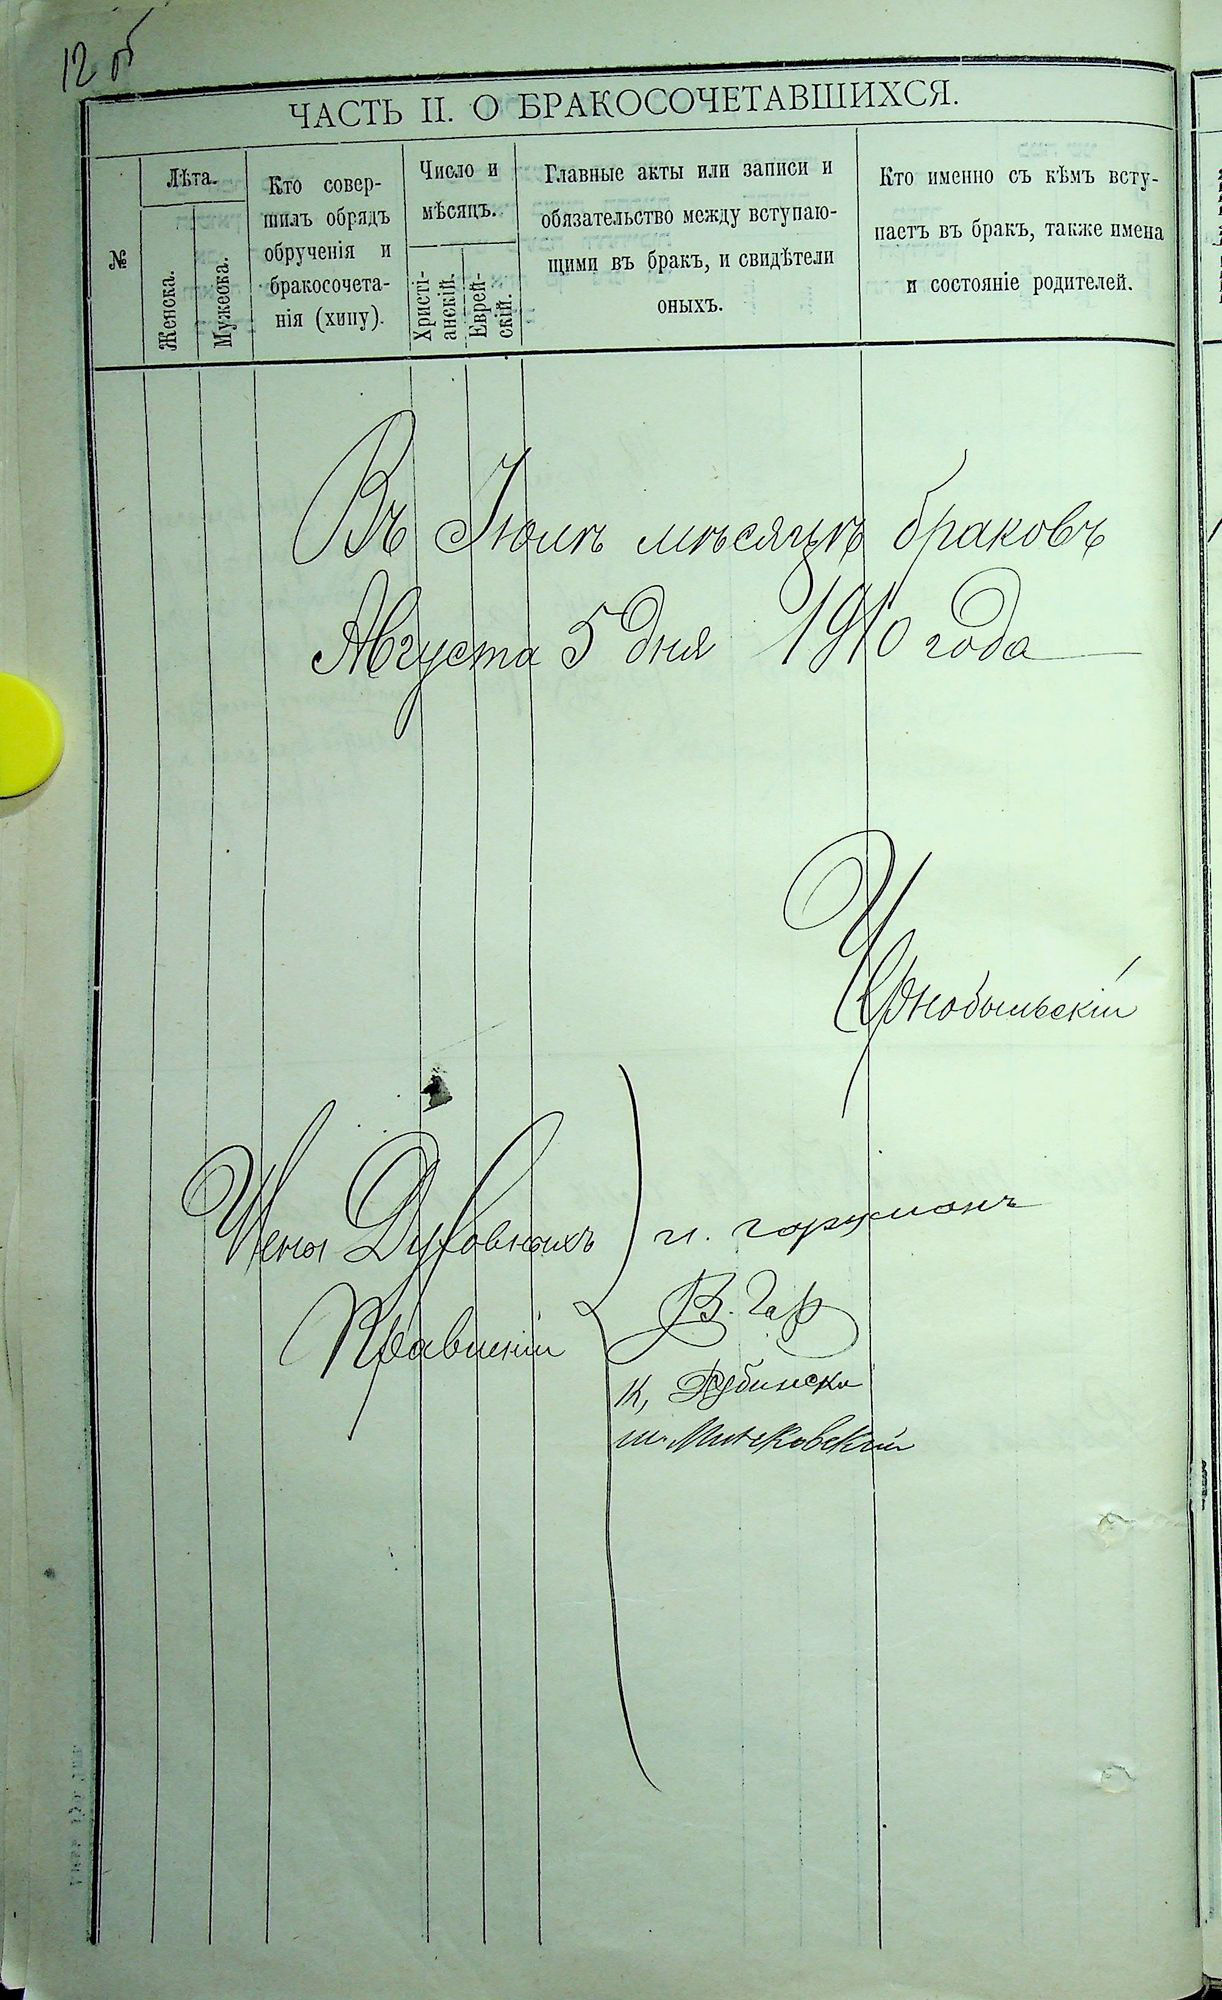 12 об
ЧАСТЬ II. О БРАКОСОЧЕТАВШИХСЯ.
№
Лѣта.
Женска.
Мужеска.
Кто совер-
шилъ обрядъ
обрученія и
бракосочета-
нія (хипу).
Число и
мѣсяцъ.
Христі-
анскій.
Еврей-
скій.
Главные акты или записи и
обязательство между вступаю-
щими въ бракъ, и свидѣтели
оныхъ.
Кто именно съ кѣмъ всту-
паетъ въ бракъ, также имена
и состояніе родителей.
Въ Іюлѣ мѣсяцѣ браковъ
Августа 5 дня 1910 года
Чернобыльскій
Члены Духовныхъ
Правленій
В.
К,